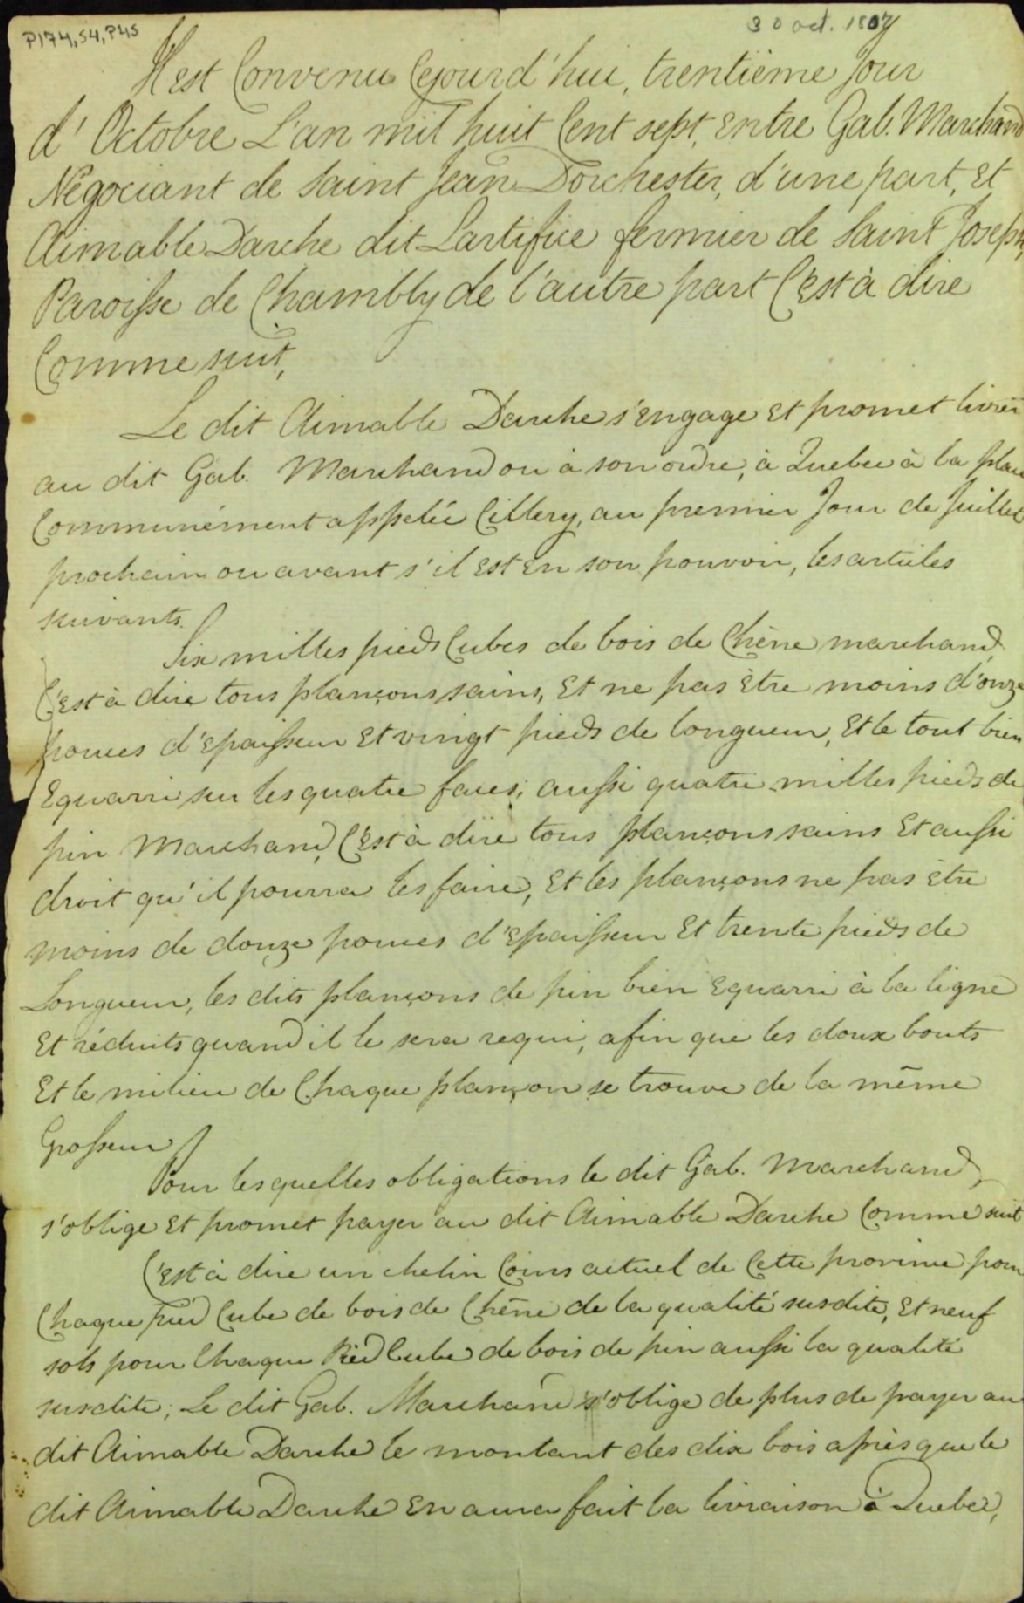 P174,S4,P45
30 oct. 1807
Il est Convenu Cejourd'hui, trentième Jour
d'Octobre L'an mil huit Cent sept, Entre Gab. Marchand
Négociant de Saint Jean Dorchester, d'une part, Et
Aimable Darche dit Lartifice fermier de Saint Joseph,
Paroisse de Chambly de l'autre part C'est à dire
Comme suit,
Le dit Aimable Darche s'engage Et promet livrer
au dit Gab. Marchand ou à son ordre, à Quebec à la place
Communément appelée Cillery, au premier Jour de Juillet
prochain ou avant s'il Est En son pouvoir, les articles
suivants.
Six milles pieds Cubes de bois de Chêne marchand,
C'est à dire tous plançons sains, Et ne pas Être moins d'onze
pouces d'Epaisseur Et vingt pieds de longueur, Et le tout bien
Equarri sur les quatre faces; aussi quatre milles pieds de
pin Marchand, C'est à dire tous plançons sains Et aussi
droit qu'il pourra les faire, Et les plançons ne pas Etre
moins de douze pouces d'Epaisseur Et trente pieds de
Longueur, les dits plançons de pin bien Equarri à la ligne
Et réduits quand il le sera requi, afin que les doux bouts
Et le milieu de Chaque plançon se trouve de la même
Grosseur
Pour lesquelles obligations le dit Gab. Marchand,
s'oblige Et promet payer au dit Aimable Darche Comme suit
C'est à dire un chelin Coins actuel de Cette province pour
Chaque Pied Cube de bois de Chêne de la qualité susdite, Et neuf
sols pour Chaque Pied Cube de bois de pin aussi la qualité
susdite; Le dit Gab. Marchand s'oblige de plus de payer au
dit Aimable Darche le montant des dix bois après que le
dit Aimable Darche En aura fait la livraison à Quebec,